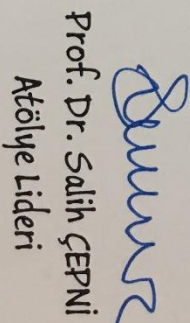 Prof. Dr. Salih ÇEPNİ
Atölye Lideri